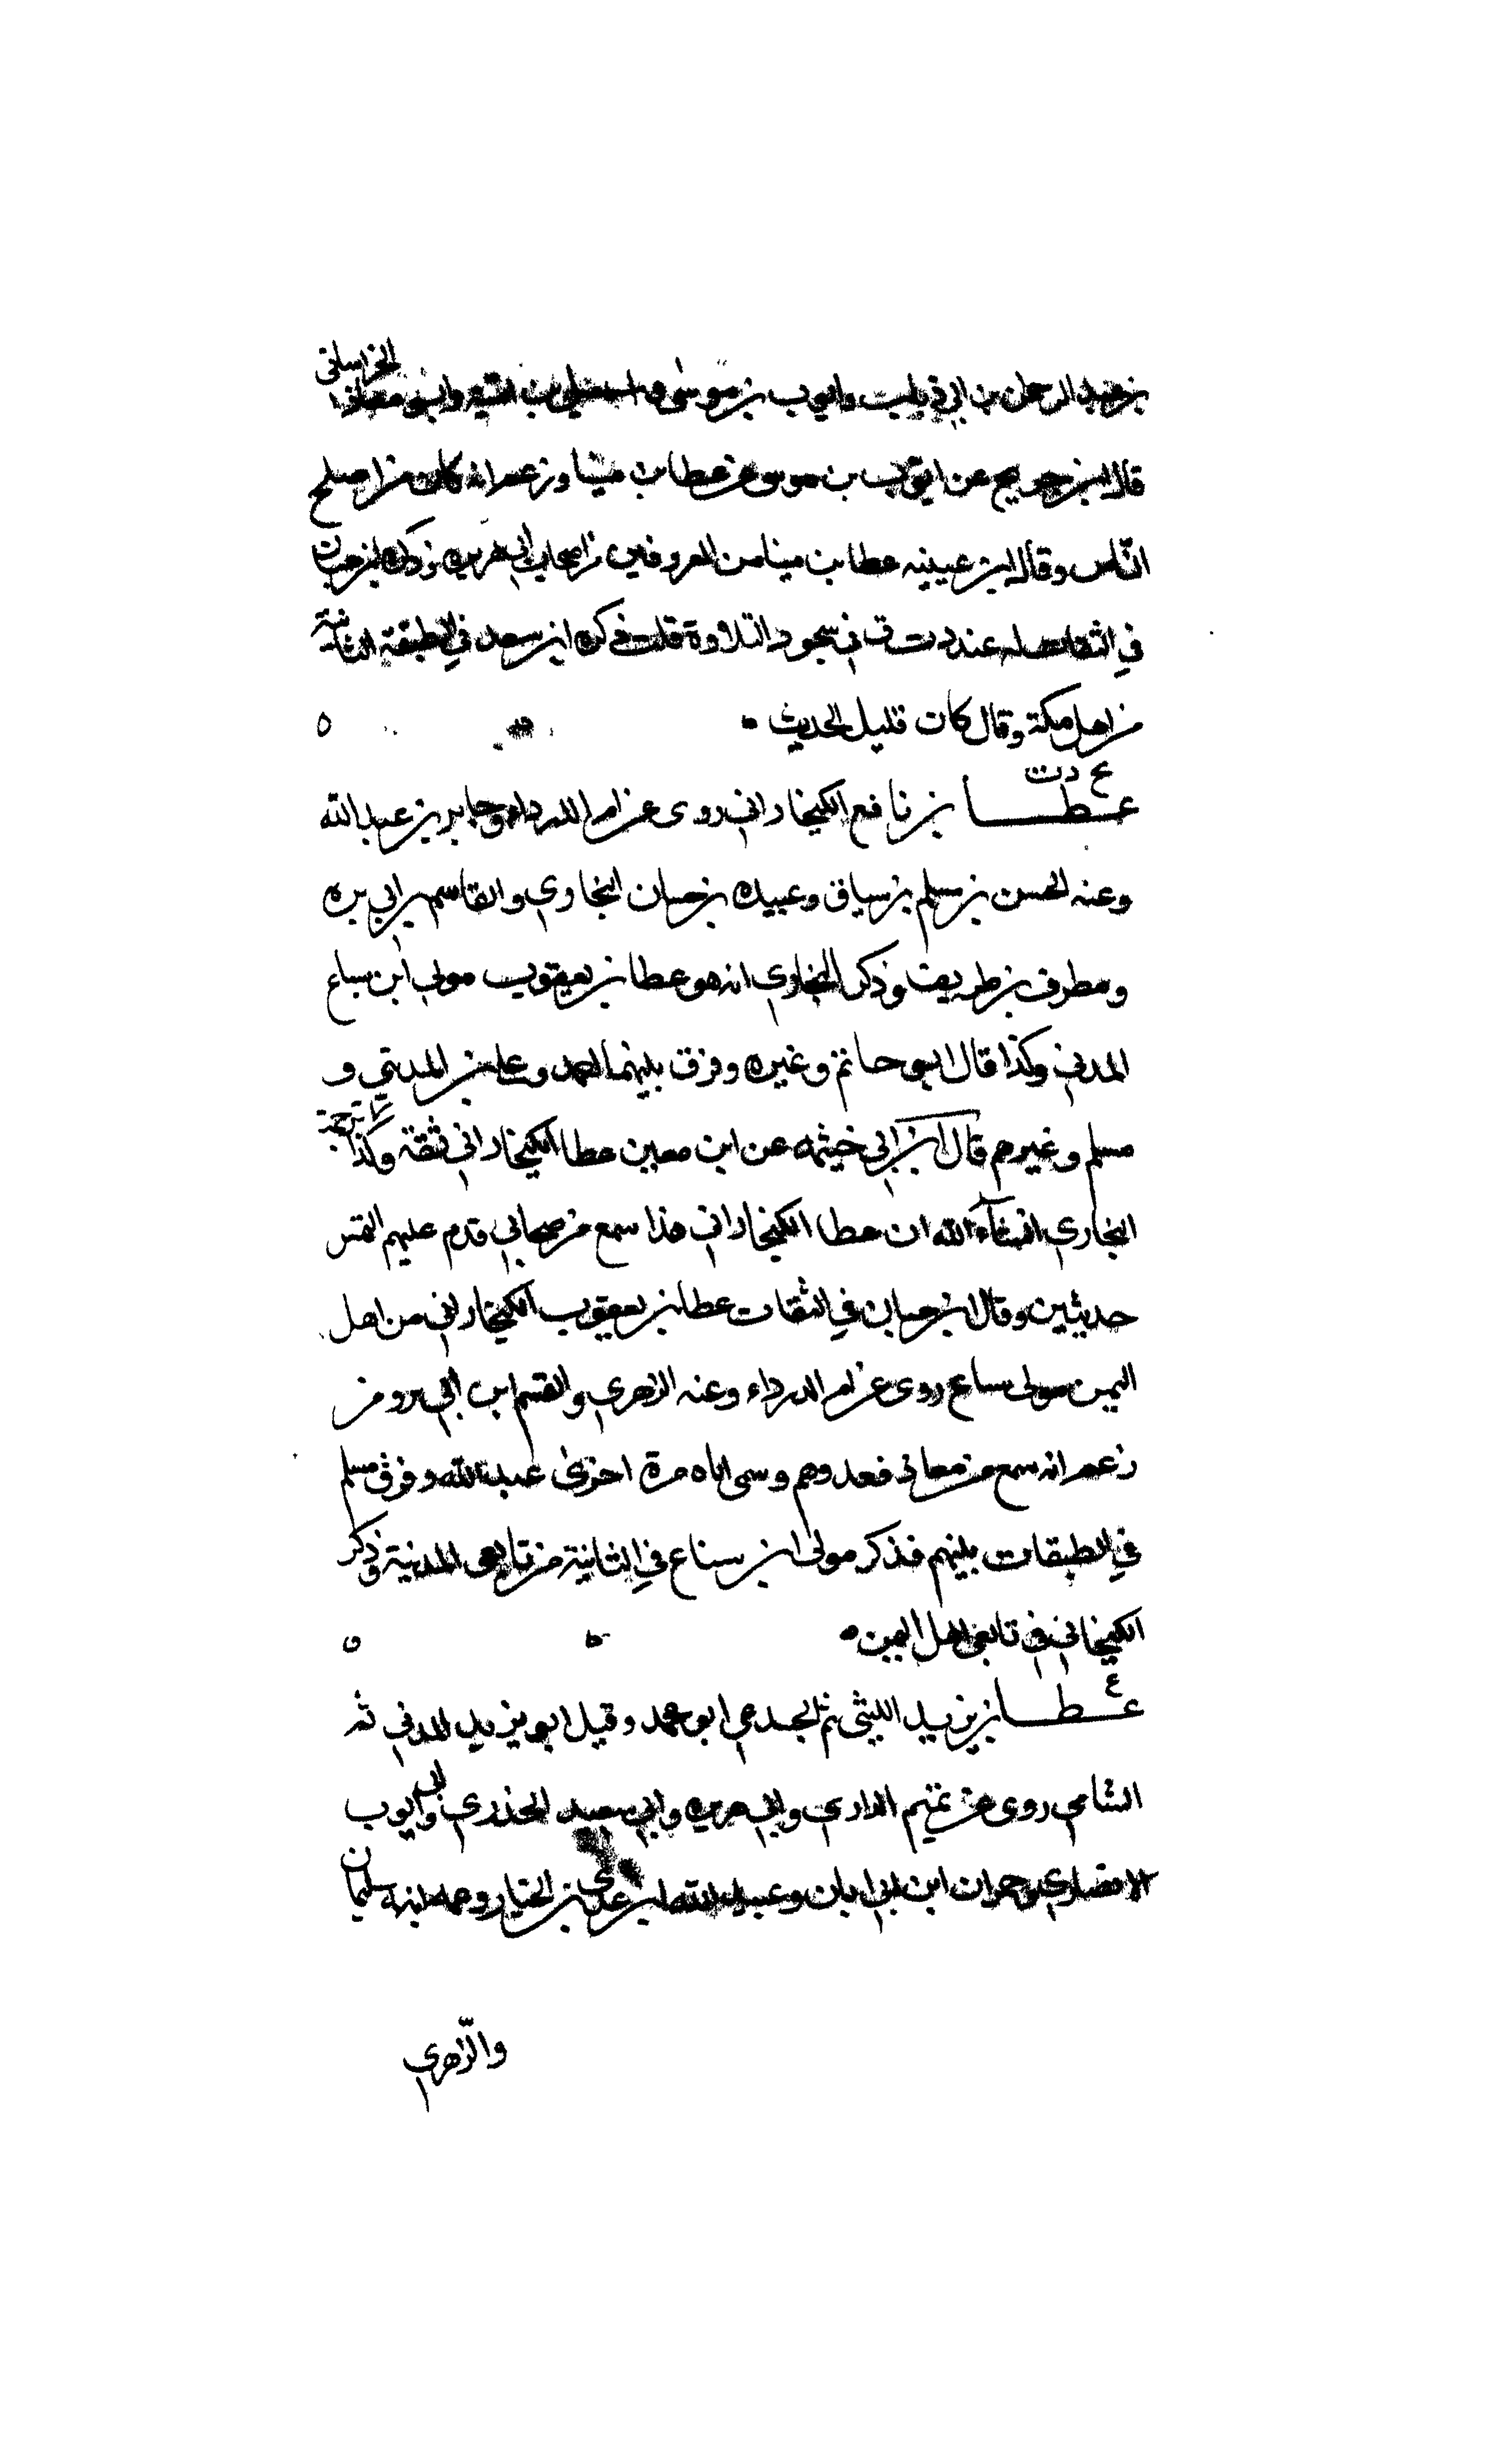 بن عبد الرحمن بن ابي ذباب وايوب بن موسى و اسمعيل بن امية وابو معاذ الخراساني
قال ابن جريج عن ايوب بن موسى عن عطا بن مينا وزعم انه كان من اصلح
الناس وقال ابن عيينه عطا بن مينا من المعروفين من اصحاب ابي هريره وذكره ابن حبان
في الثقات له عند دت ق في سجود التلاوة قلت ذكره ابن سعد في الطبقة الثانية
من اهل مكة وقال كان قليل الحديث ه ه
خ د ت
عطا بن نافع الكيخاراني روى عن ام الدرداء وجابر بن عبد الله
وعنه الحسن بن مسلم بن يناق وعبيده بن حسان البخاري والقاسم بن ابي بره
ومطرف بن طريف وذكر البخاري انه هو عطا بن يعقوب مولى ابن سباع
المدني وكذا قال ابو حاتم وغيره وفرق بينهما احمد وعلي بن المديني و
مسلم وغيرهم قال ابن ابي خيثمه عن ابن معين عطا الكيخاراني ثقة وكذا ترجمة
البخاري انشاء الله ان عطا الكيخاراني هذا سمع من صحابي قدم عليهم اليمن
حديثين وقال ابن حبان في الثقات عطا بن يعقوب الكيخاراني من اهل
اليمن مولى سباع روى عن ام الدرداء وعنه الزهري والقسم ابن ابي بره ومن
زعم انه سمع من معاذ فعد وهم وسمى اباه مرة اخرى عبد الله وفرق مسلم
في الطبقات بينهم فذكر مولى ابن سباع في الثانية من تابعي المدينة وذكر
الكيخاني في تابعي اهل اليمن ه ه
ع
عطا بن يزيد الليثي ثم الجندعي ابو محمد وقيل ابو يزيد المدني ثم
الشامي روى عن تميم الداري وابي هريره وابي سعيد الخدري وابي ايوب
الانصاري وحمران ابن ابي ابان وعبيد الله بن عدي بن الخيار وعمه ابنه سليمان
والزهري